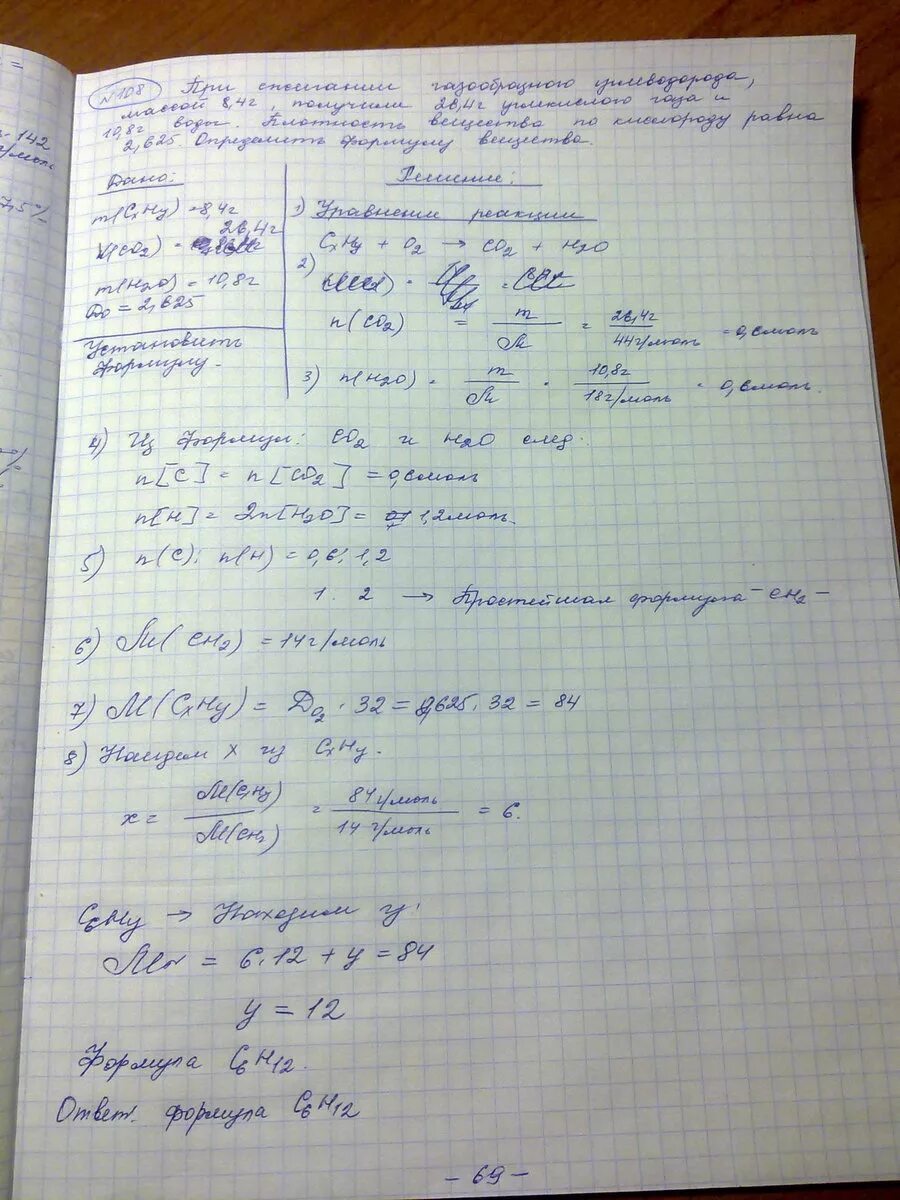 №108 При сжигании газообразного углеводорода,
массой 8,4г, получили 26,4г углекислого газа и
10,8г воды. Плотность вещества по кислороду равна
2,625. Определить формулу вещества.
Дано:
m(CxHy) = 8,4г
26,4г
(CO2) =
m(H2O) = 10,8г
D0 = 2,625
Установить
формулу.
Решение:
1) Уравнение реакции
CxHy + O2 → CO2 + H2O
2)
n(CO2) = m/M = 26,4г/44г/моль = 0,6моль
3) n(H2O) = m/M = 10,8г/18г/моль = 0,6моль.
4) Из формул: CO2 и H2O след.
n[C] = n[CO2] = 0,6моль
n[H] = 2n[H2O] = 1,2моль.
5) n(C): n(H) = 0,6: 1,2
1: 2 → Простейшая формула - CH2 -
6) M(CH2) = 14г/моль
7) M(CxHy) = DO2 · 32 = 2,625 · 32 = 84
8) Найдем x из CxHy.
x = M(CxHy)/M(CH2) = 84г/моль/14г/моль = 6.
C6Hy → Находим y:
Mr = 6·12 + y = 84
y = 12
Формула C6H12.
Ответ: формула C6H12
- 69 -
142
г/моль
7,5%